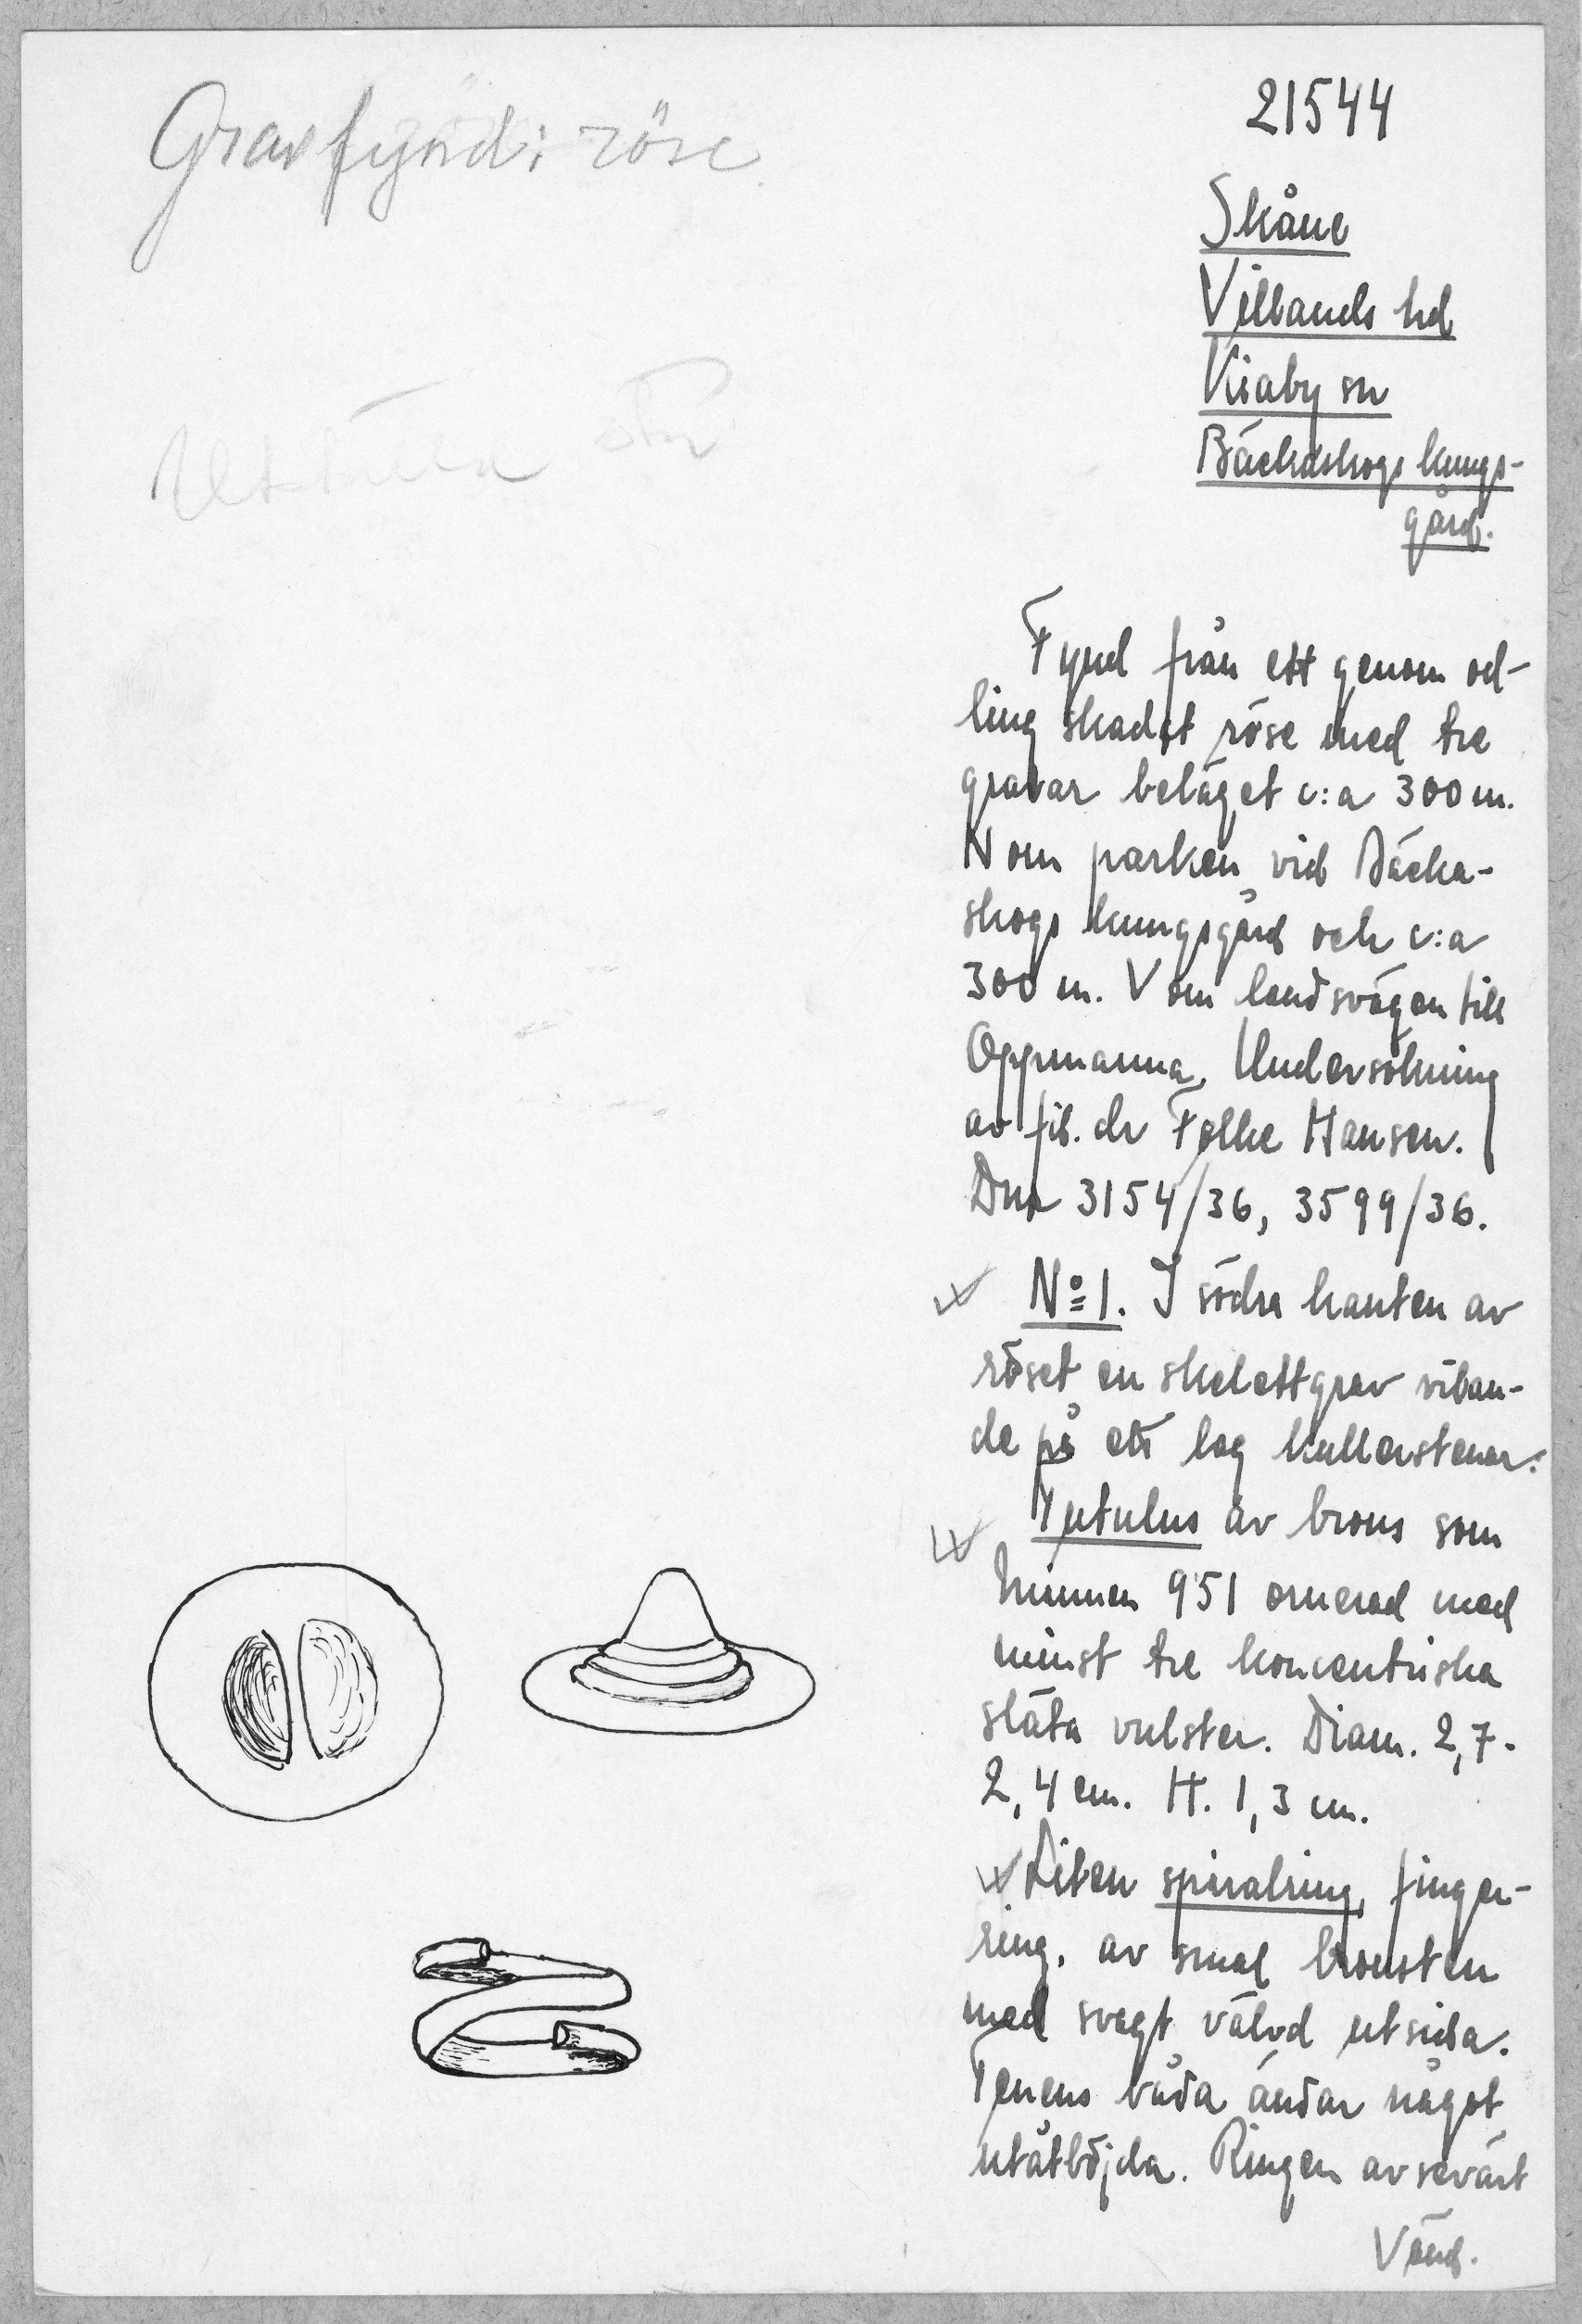 Gravfynd i röse
21544
Skåne
Villands hd
Kiaby sn
Bäckaskogs kungs-
gård.
Fynd från ett genom od-
ling skadat röse med tre
gravar beläget c:a 300 m.
N om parken vid Bäcka-
skogs kungsgård och c:a
300 m. V om landsvägen till
Oppmanna. Undersökning
av fil. dr Folke Hansen.
Dnr 3154/36, 3599/36.
№ 1. I södra kanten av
röset en skelettgrav vilan-
de på ett lag kullerstenar:
Tutulus av brons som
Minnen 951 ornerad med
minst tre koncentriska
släta vulster. Diam. 2,7-
2,4 cm. H. 1,3 cm.
Liten spiralring, finger-
ring, av smal bronsten
med svagt välvd utsida.
Tenens båda ändar något
utåtböjda. Ringen avsevärt
Vänd.